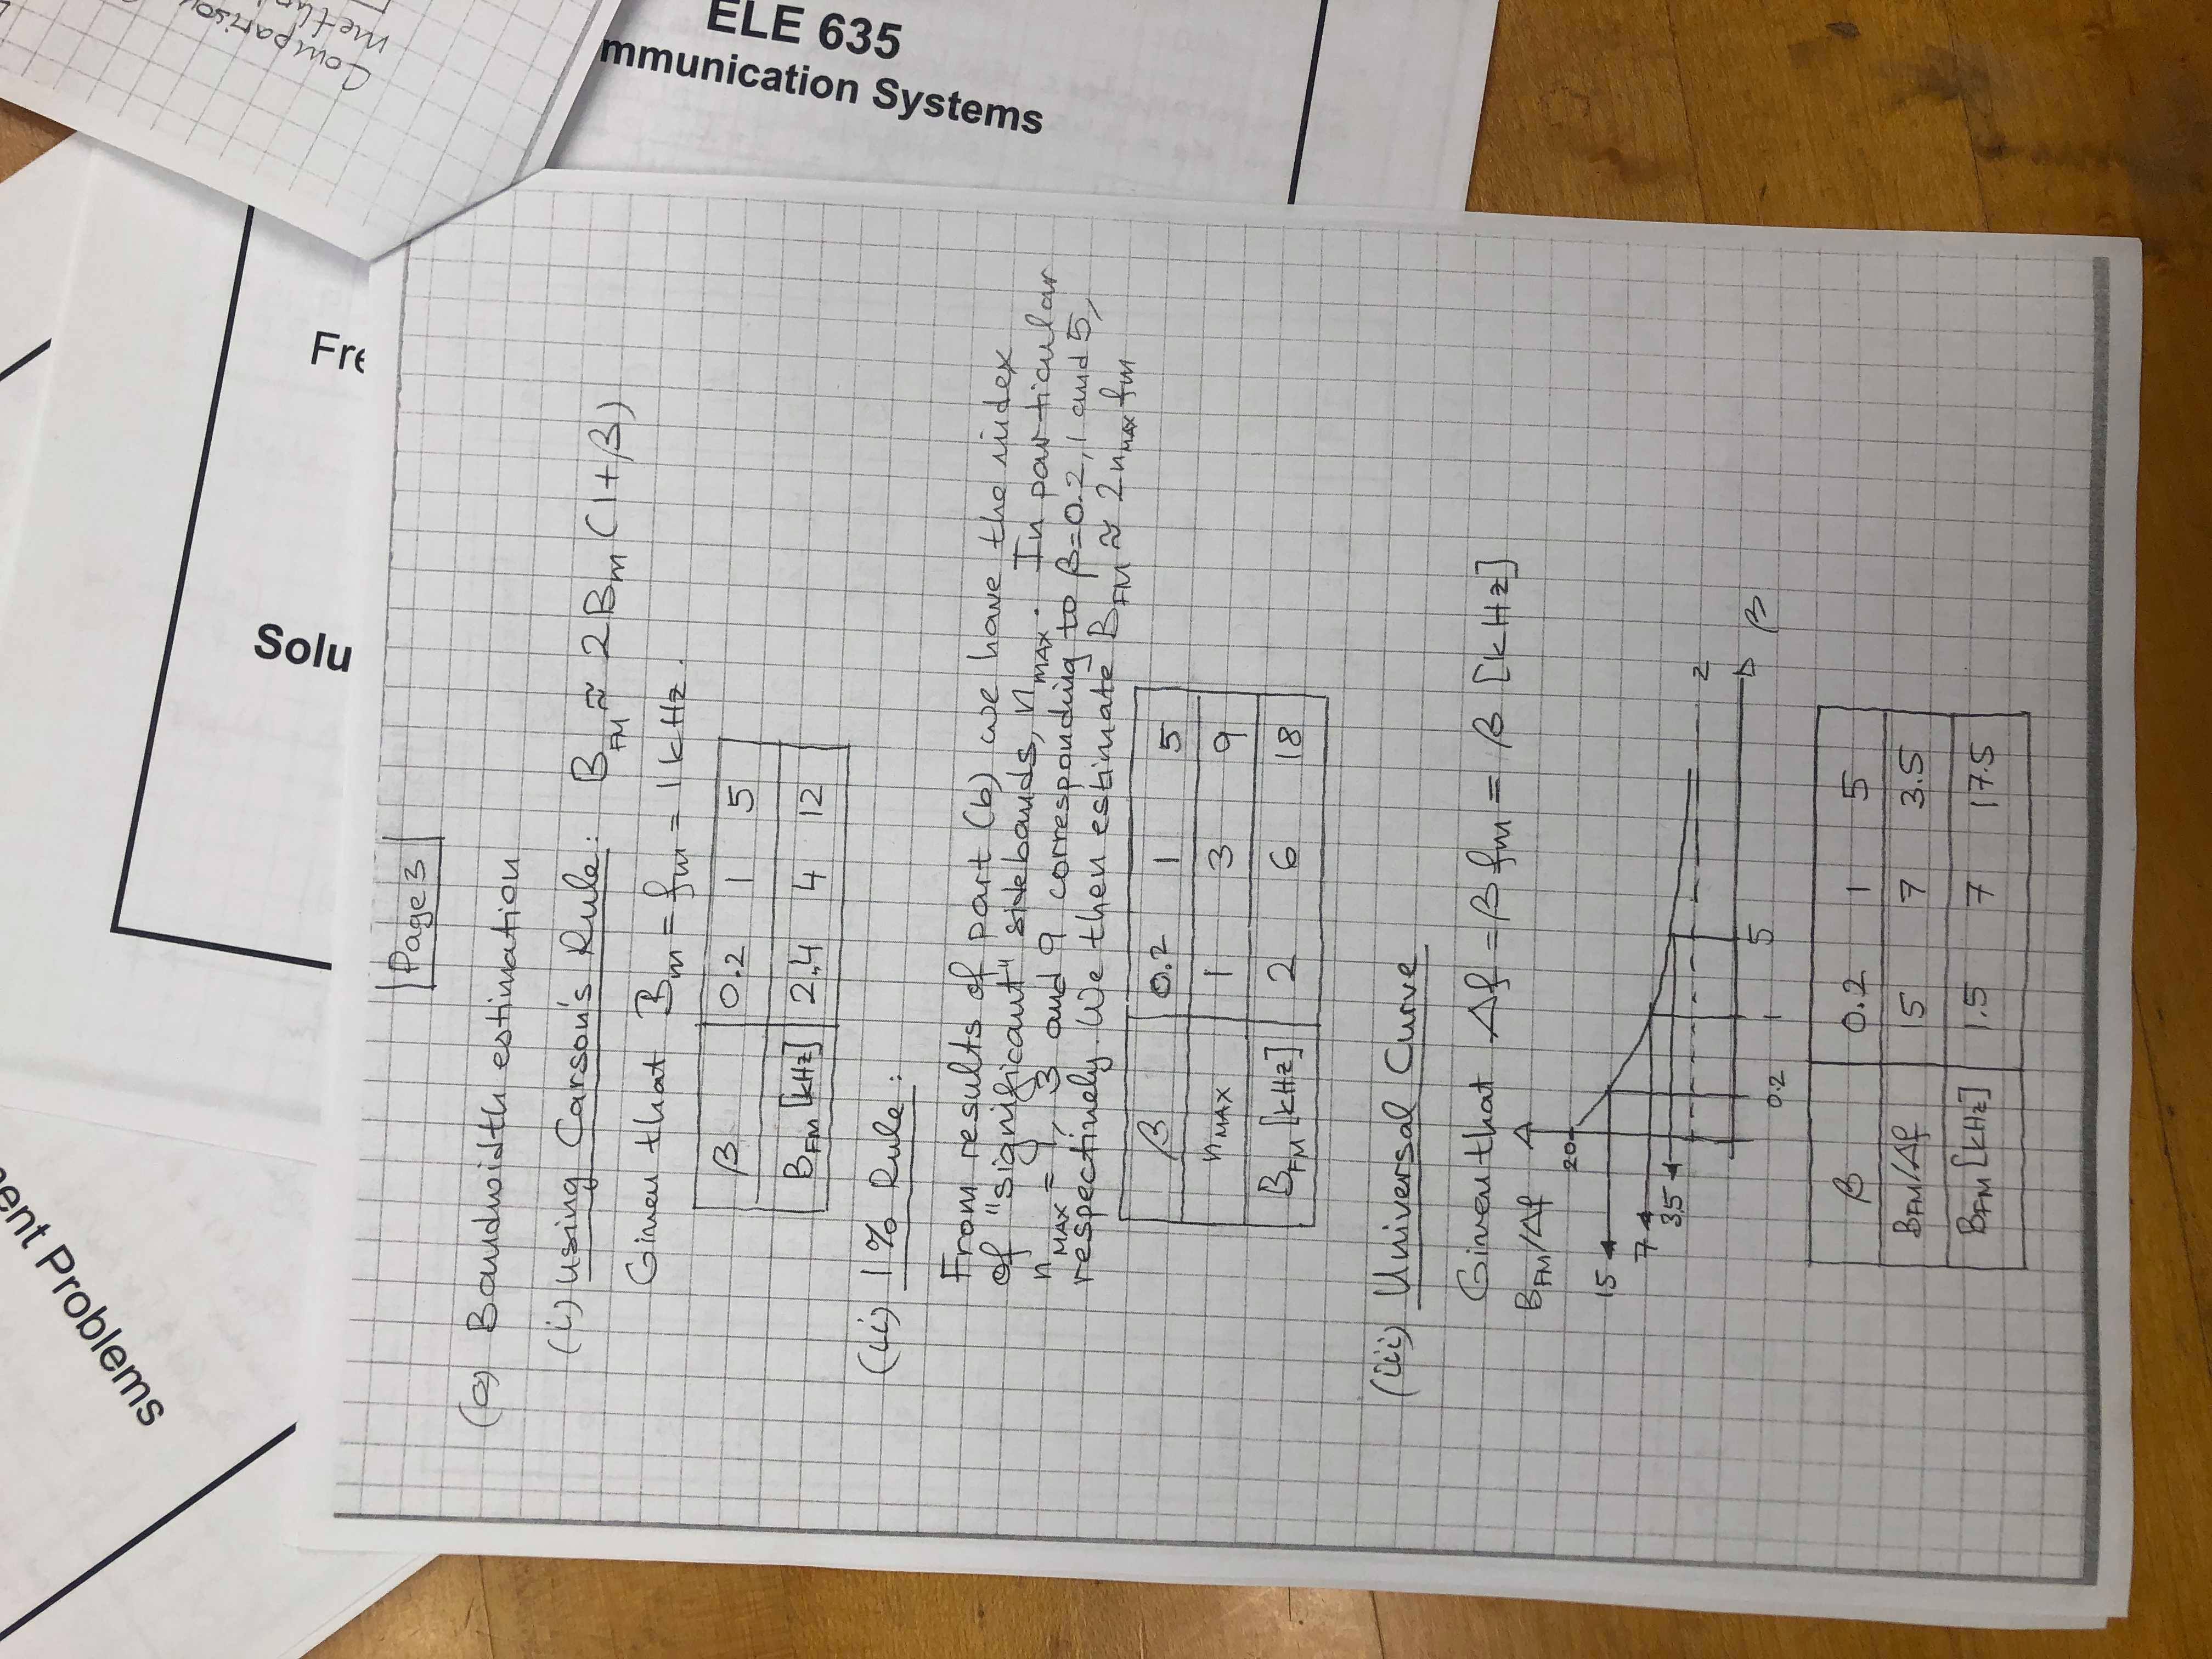 Page 3
(c) Bandwidth estimation
(i) Using Carson's Rule: B_FM ≈ 2B_m(1+β)
Given that B_m = f_m = 1 kHz.
β 0.2 1 5
B_FM [kHz] 2.4 4 12
(ii) 1% Rule:
From results of part (b) we have the index
of "significant" sidebands, n_MAX. In particular
n_MAX = 1, 3 and 9 corresponding to β=0.2, 1 and 5,
respectively. We then estimate B_FM ≈ 2 n_MAX f_m
β 0.2 1 5
n_MAX 1 3 9
B_FM [kHz] 2 6 18
(iii) Universal Curve
Given that Δf = β f_m = β [kHz]
B_FM/Δf
20
15
7
3.5
2
0.2 1 5 β
β 0.2 1 5
B_FM/Δf 15 7 3.5
B_FM [kHz] 1.5 7 17.5
ent Problems
Solu
Fre
ELE 635
mmunication Systems
Comparison
metho